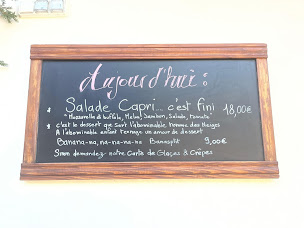 Aujourd'hui :
Salade Capri... c'est fini 18,00€
"Mozzarella di buffala, Melon, Jambon, Salade, Tomate"
c'est le dessert que sert l'abominable homme des Neiges
A l'abominable enfant teenage un amour de dessert
Banana-na, na-na-na-na Bananasplit 9,00€
Sinon demandez-notre Carte de Glaces & Crêpes